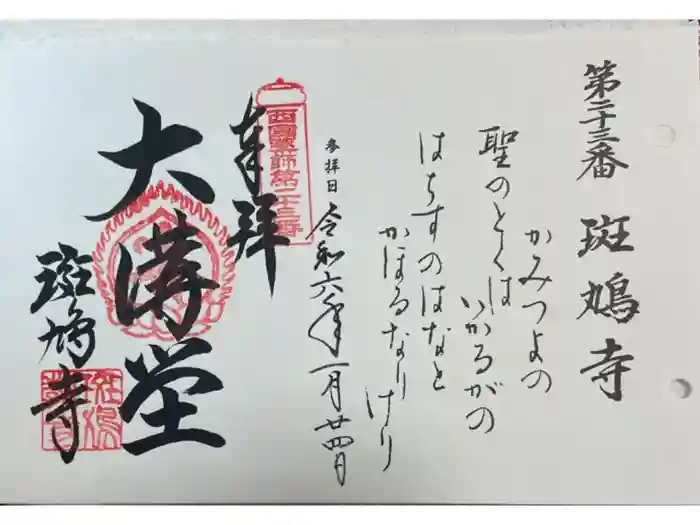 第二十三番 斑鳩寺
かみつよの
聖のとくは
いかるがの
はちすのはなと
かほるなりけり
参拝日
令和六年一月廿四日
奉拝
西国薬師第二十三番
大講堂
斑鳩寺